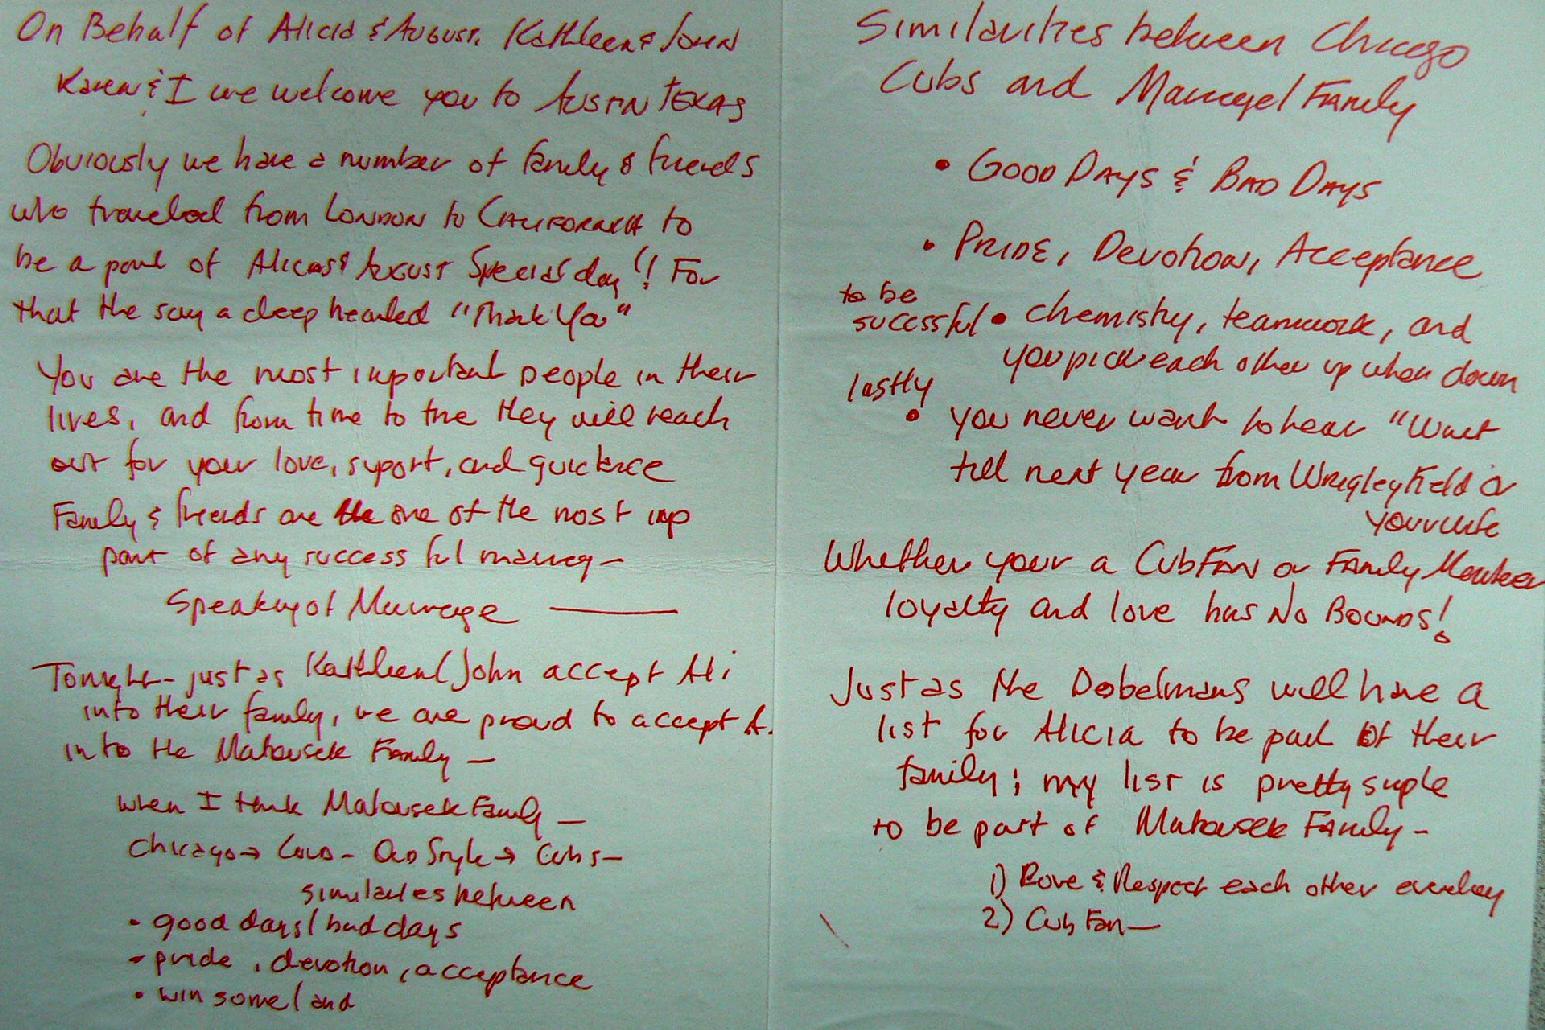 On Behalf of Alicia & August, Kathleen & John
Karen & I we welcome you to Austin Texas
Obviously we have a number of family & friends
who traveled from London to California to
be a part of Alicias & August Special day!! For
that the say a deep hearted "Thank You"
You are the most important people in their
lives, and from time to tme they will reach
out for your love, suport, and guidence
Family & friends are the one of the most imp
part of any success ful marreg -
Speaking of Marriage
Tonight - just as Kathleen/John accept Ali
into their family, we are proud to accept A.
into the Matousek Family -
when I think Matousek Family -
Chicago → Cold - Old Style → Cubs -
similarties between
• good days/bad days
- pride, devotion, acceptance
• win some/and
Similarities between Chicago
Cubs and Marriage/Family
• Good Days & Bad Days
• Pride, Devotion, Acceptance
to be
sucessful • chemistry, teamwork, and
you pick each other up when down
lastly
• you never want to hear "Wait
till next year from Wrigley Field or
your wife
Whether your a Cub Fan or Family Member
loyalty and love has No Bounds!
Just as the Dobelmans will have a
list for Alicia to be part of their
family; my list is pretty simple
to be part of Matousek Family -
1) Love & Respect each other everday
2) Cub Fan -